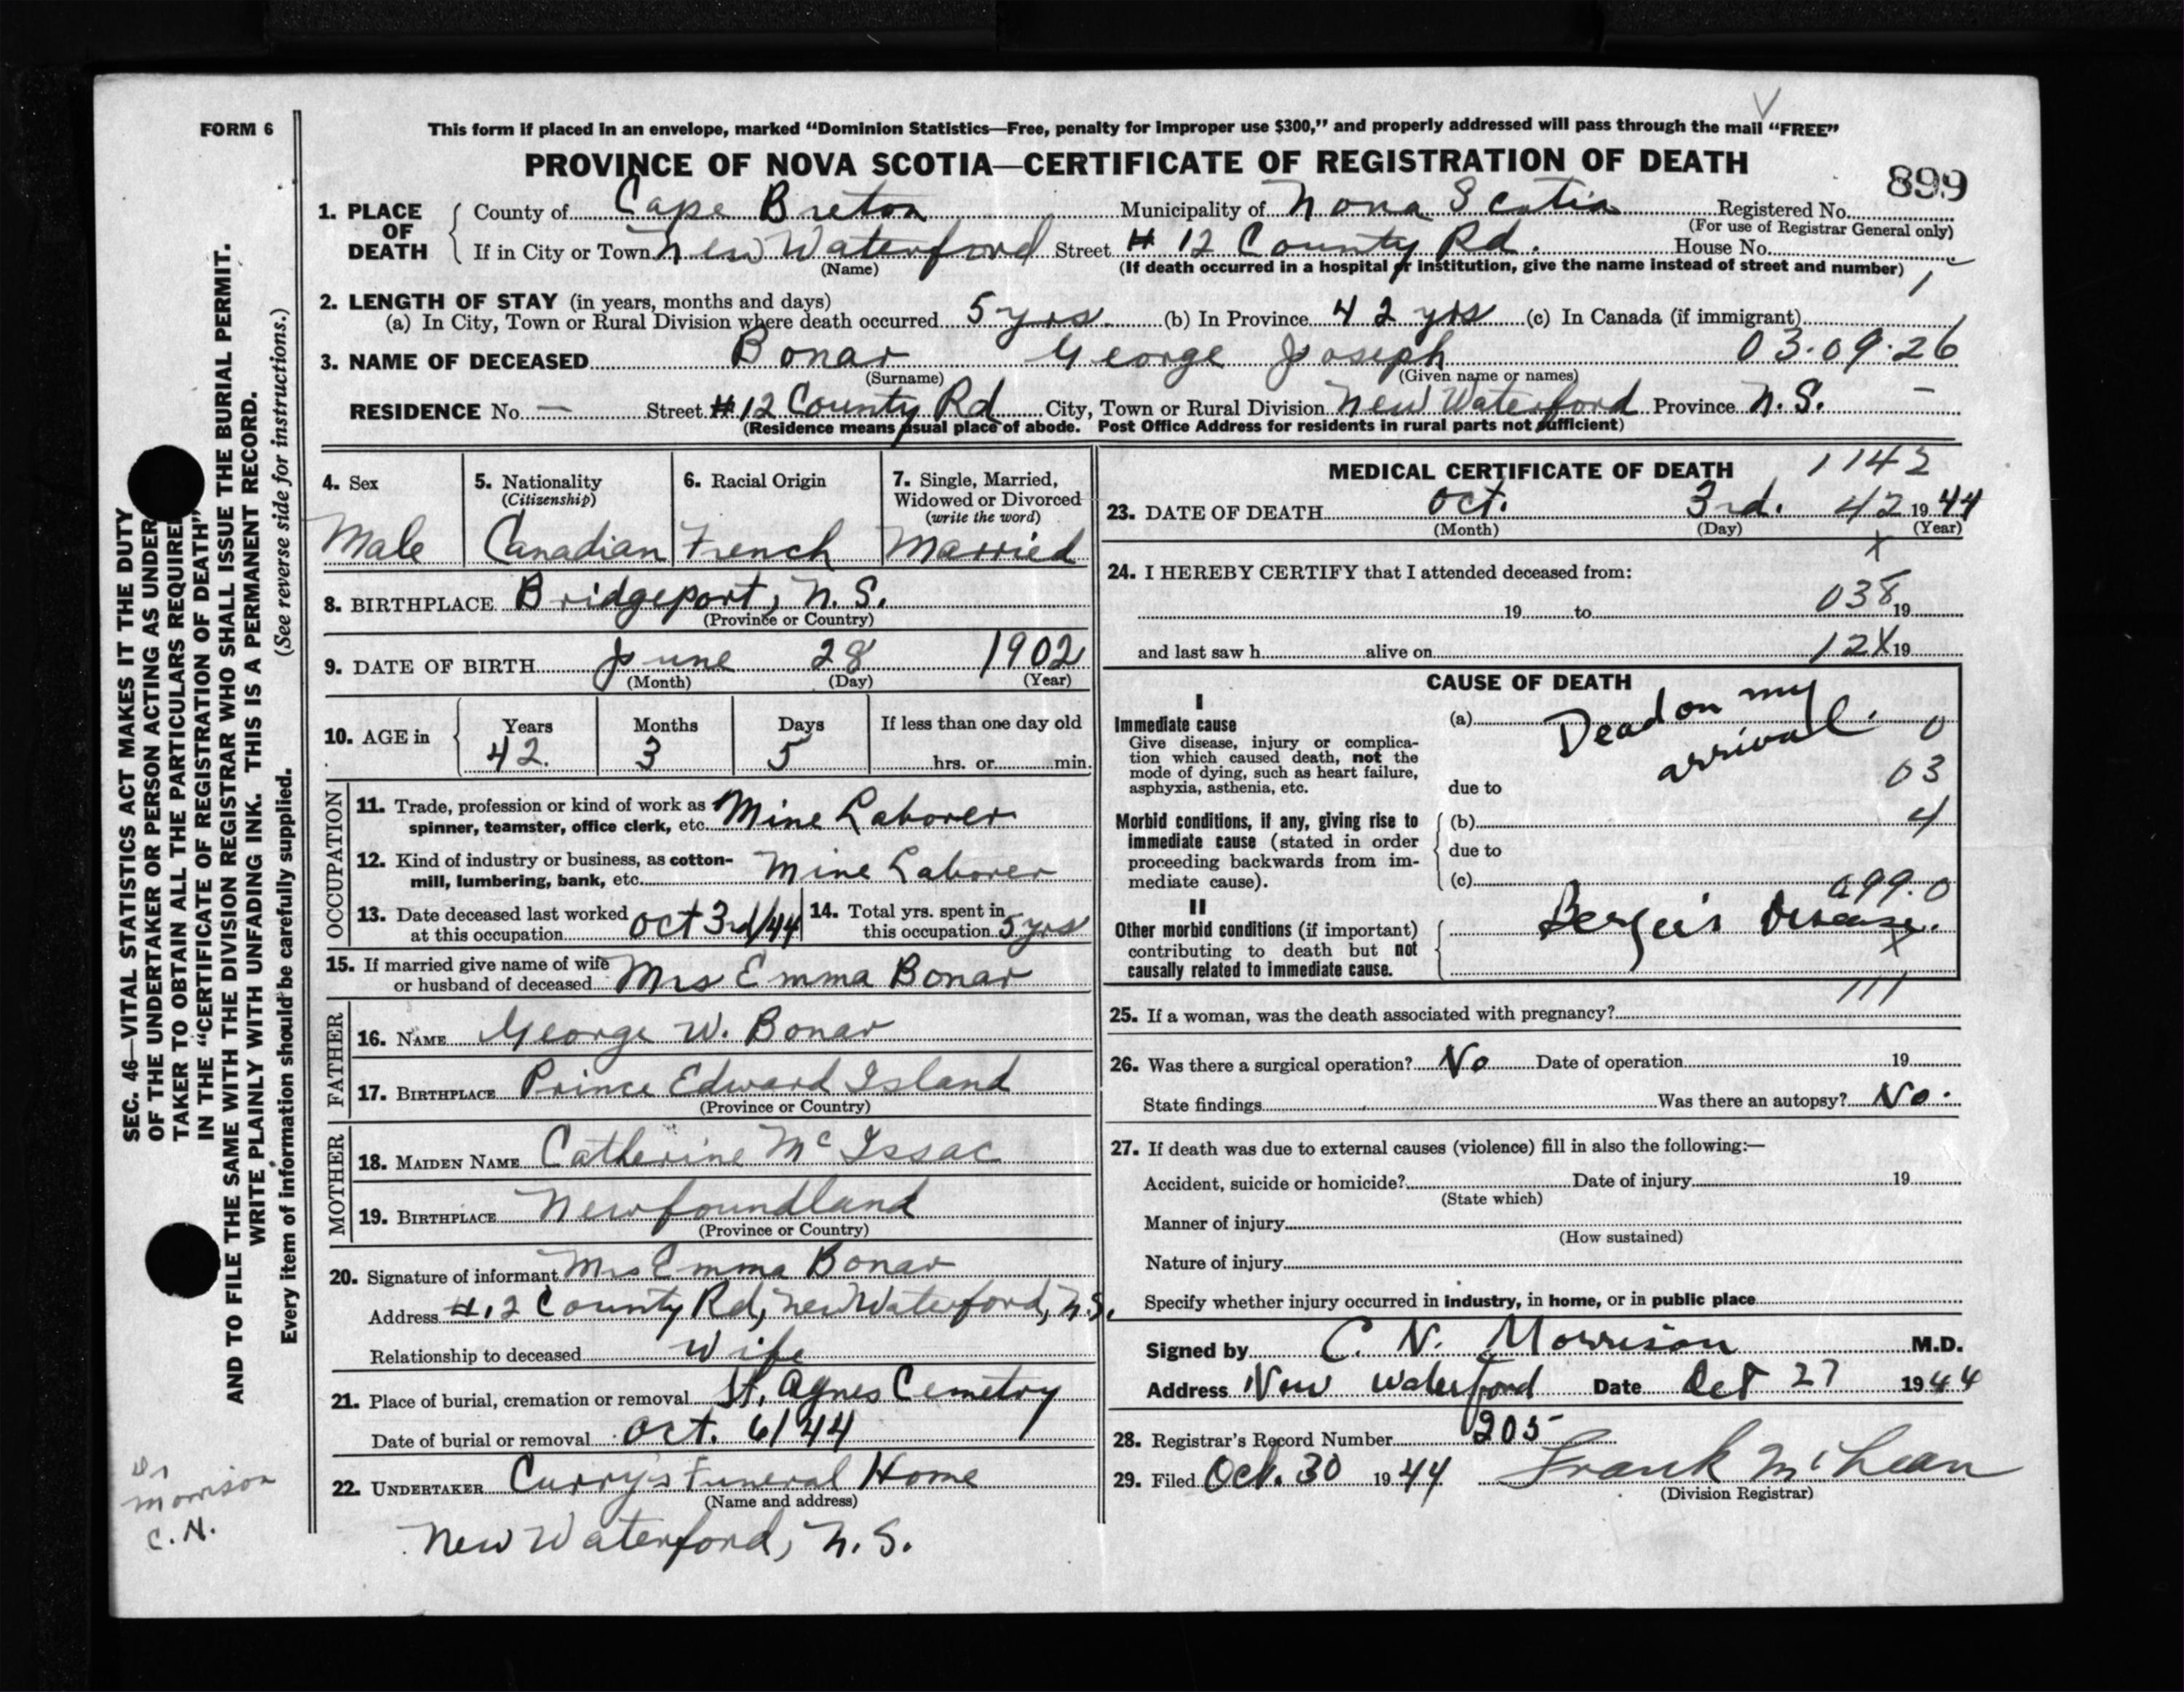 FORM 6
This form if placed in an envelope, marked "Dominion Statistics—Free, penalty for improper use $300," and properly addressed will pass through the mail "FREE"
PROVINCE OF NOVA SCOTIA—CERTIFICATE OF REGISTRATION OF DEATH
899
1. PLACE OF DEATH
County of Cape Breton Municipality of Nova Scotia Registered No.
(For use of Registrar General only)
If in City or Town New Waterford Street # 12 County Rd. House No.
(Name) (If death occurred in a hospital or institution, give the name instead of street and number)
2. LENGTH OF STAY (in years, months and days)
(a) In City, Town or Rural Division where death occurred 5 yrs. (b) In Province 42 yrs (c) In Canada (if immigrant)
3. NAME OF DECEASED Bonar George Joseph 03.09.26
(Surname) (Given name or names)
RESIDENCE No. — Street #12 County Rd City, Town or Rural Division New Waterford Province N.S.
(Residence means usual place of abode. Post Office Address for residents in rural parts not sufficient)
4. Sex
Male
5. Nationality
(Citizenship)
Canadian
6. Racial Origin
French
7. Single, Married,
Widowed or Divorced
(write the word)
Married
8. BIRTHPLACE Bridgeport, N.S.
(Province or Country)
9. DATE OF BIRTH June 28 1902
(Month) (Day) (Year)
10. AGE in
Years Months Days If less than one day old
42. 3 5 hrs. or min.
OCCUPATION
11. Trade, profession or kind of work as
spinner, teamster, office clerk, etc. Mine Laborer
12. Kind of industry or business, as cotton-
mill, lumbering, bank, etc. Mine Laborer
13. Date deceased last worked
at this occupation Oct 3rd/44
14. Total yrs. spent in
this occupation 5 yrs
15. If married give name of wife
or husband of deceased Mrs Emma Bonar
FATHER
16. NAME George W. Bonar
17. BIRTHPLACE Prince Edward Island
(Province or Country)
MOTHER
18. MAIDEN NAME Catherine McIssac
19. BIRTHPLACE Newfoundland
(Province or Country)
20. Signature of informant Mrs Emma Bonar
Address #12 County Rd, New Waterford, N.S.
Relationship to deceased Wife
21. Place of burial, cremation or removal St. Agnes Cemetry
Date of burial or removal Oct. 6/44
22. UNDERTAKER Curry's Funeral Home
(Name and address)
New Waterford, N.S.
MEDICAL CERTIFICATE OF DEATH 1142
23. DATE OF DEATH Oct. 3rd. 42 1944
(Month) (Day) (Year)
X
24. I HEREBY CERTIFY that I attended deceased from:
19 to 038 19
and last saw h alive on 12X 19
CAUSE OF DEATH
I
Immediate cause
Give disease, injury or complica-
tion which caused death, not the
mode of dying, such as heart failure,
asphyxia, asthenia, etc.
(a) Dead on my
arrival.
0
03
4
due to
Morbid conditions, if any, giving rise to
immediate cause (stated in order
proceeding backwards from im-
mediate cause).
(b)
due to
(c)
099.0
II
Other morbid conditions (if important)
contributing to death but not
causally related to immediate cause.
Disease.
X
111
25. If a woman, was the death associated with pregnancy?
26. Was there a surgical operation? No Date of operation 19
State findings Was there an autopsy? No.
27. If death was due to external causes (violence) fill in also the following:—
Accident, suicide or homicide? Date of injury 19
(State which)
Manner of injury
(How sustained)
Nature of injury
Specify whether injury occurred in industry, in home, or in public place
Signed by C. N. Morrison M.D.
Address New Waterford Date Oct 27 1944
28. Registrar's Record Number 205
29. Filed Oct. 30 1944 Frank McLean
(Division Registrar)
SEC. 46—VITAL STATISTICS ACT MAKES IT THE DUTY
OF THE UNDERTAKER OR PERSON ACTING AS UNDER
TAKER TO OBTAIN ALL THE PARTICULARS REQUIRE
IN THE "CERTIFICATE OF REGISTRATION OF DEATH"
AND TO FILE THE SAME WITH THE DIVISION REGISTRAR WHO SHALL ISSUE THE BURIAL PERMIT.
WRITE PLAINLY WITH UNFADING INK. THIS IS A PERMANENT RECORD.
Every item of information should be carefully supplied. (See reverse side for instructions.)
Dr
Morrison
C.N.